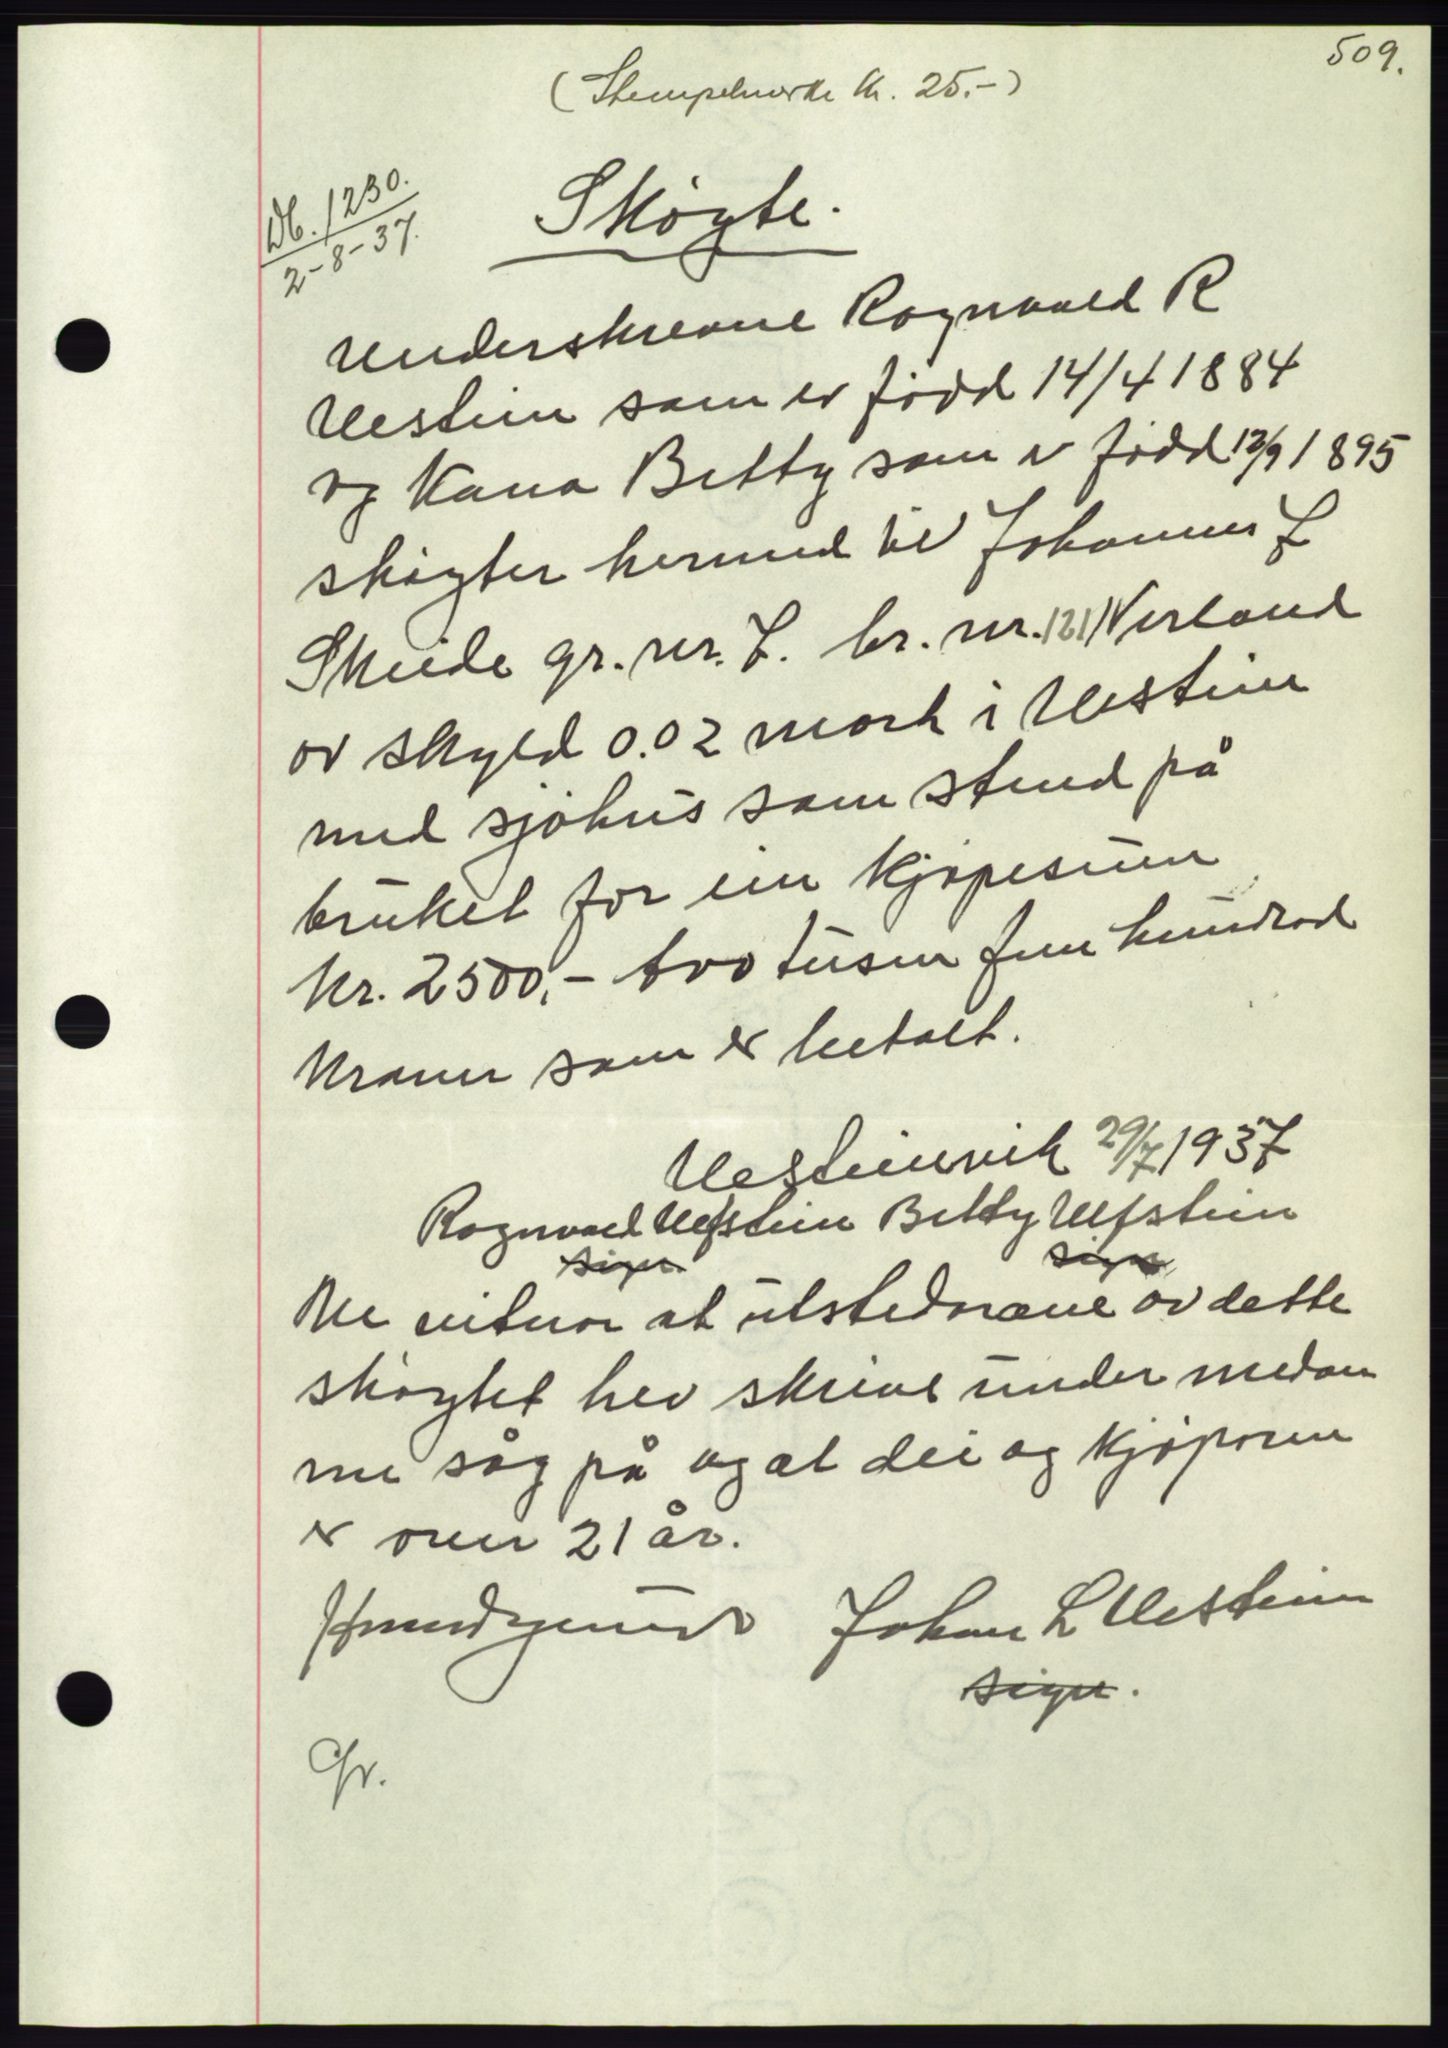 509.
(Stempelmerke kr. 25.-)
Db. 1230.
2-8-37.
Skøyte.
Underskrevne Ragnvald R
Vestein som er fødd 14/4 1884
og Kana Betty som er fødd 12/9 1895
skøyter hermed til Johannes J
Skeide gr. nr. 7. br. nr. 121 Verland
av skyld 0.02 mark i Vestein
med sjøhus som stend på
bruket for ein kjøpesum
kr. 2500,- tvo tusen fem hundrad
kroner som er betalt.
Vesteinvik 29/7 1937
Ragnvald Vefstein Betty Vefstein
sign sign
Me vitnar at utstedarane av dette
skøytet hev skrive under medan
me såg på og at dei og kjøparen
er over 21 år.
Johan L Vestein
sign.